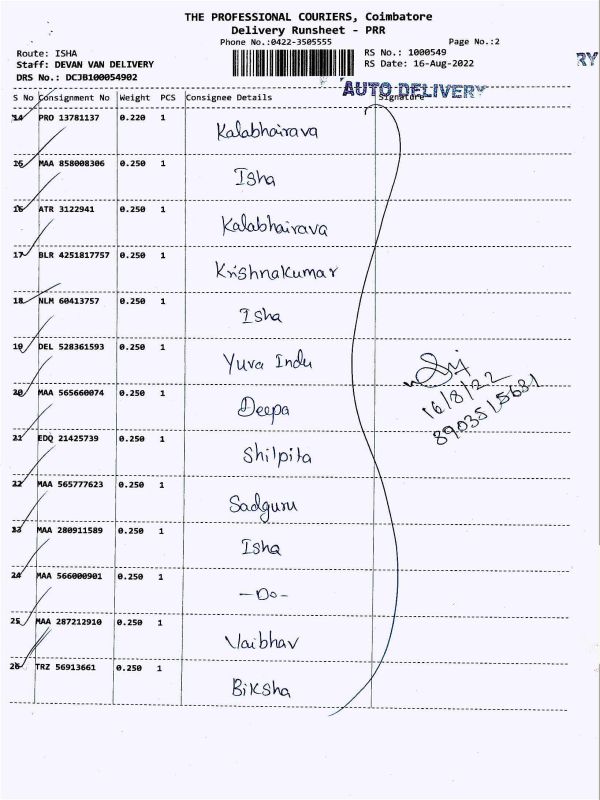 THE PROFESSIONAL COURIERS, Coimbatore
Delivery Runsheet - PRR
Phone No.:0422-3505555 Page No.:2
Route: ISHA RS No.: 1000549
Staff: DEVAN VAN DELIVERY RS Date: 16-Aug-2022
DRS No.: DCJB100054902
RY
AUTO DELIVERY
S No Consignment No Weight PCS Consignee Details Signature
14 PRO 13781137 0.220 1 Kalabhairava
15 MAA 858008306 0.250 1 Isha
16 ATR 3122941 0.250 1 Kalabhairava
17 BLR 4251817757 0.250 1 Krishnakumar
18 NLM 60413757 0.250 1 Isha
19 DEL 528361593 0.250 1 Yuva Indu
20 MAA 565660074 0.250 1 Deepa
21 EDQ 21425739 0.250 1 Shilpita
22 MAA 565777623 0.250 1 Sadguru
23 MAA 280911589 0.250 1 Isha
24 MAA 566000901 0.250 1 -Do-
25 MAA 287212910 0.250 1 Vaibhav
26 TRZ 56913661 0.250 1 Biksha
16/8/22
8903515631